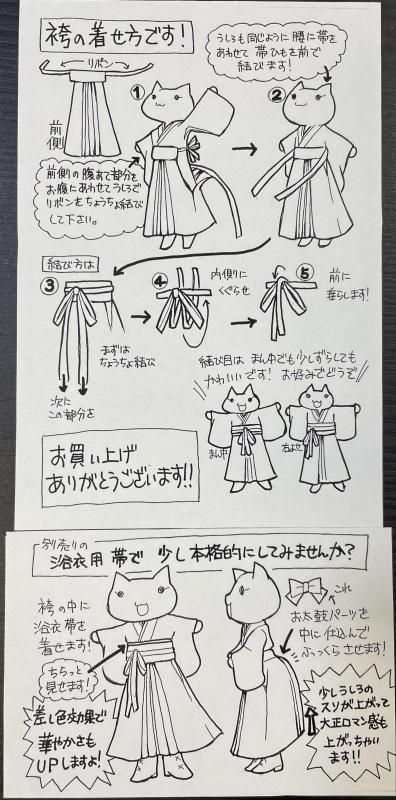 袴の着せ方です!
リボン
前側
①
前側の腹あて部分を
お腹にあわせてうしろで
リボンをちょうちょ結び
して下さい。
②
うしろも同じように腰に帯を
あわせて 帯ひもを前で
結びます!
結び方は
③
まずは
ちょうちょ結び
次に
この部分を
④
内側に
くぐらせ
⑤
前に
垂らします!
結び目は まん中でも少しずらしても
かわいいです! お好みでどうぞ
まん中
右よせ
お買い上げ
ありがとうございます!!
別売りの
浴衣用帯で 少し本格的にしてみませんか?
袴の中に
浴衣帯を
着せます!
ちらっと
見せます!
差し色効果で
華やかさも
UPしますよ!
これ
お太鼓パーツを
中に仕込んで
ふっくらさせます!
少しうしろの
スソが上がって
大正ロマン感も
上がっちゃい
ます!!